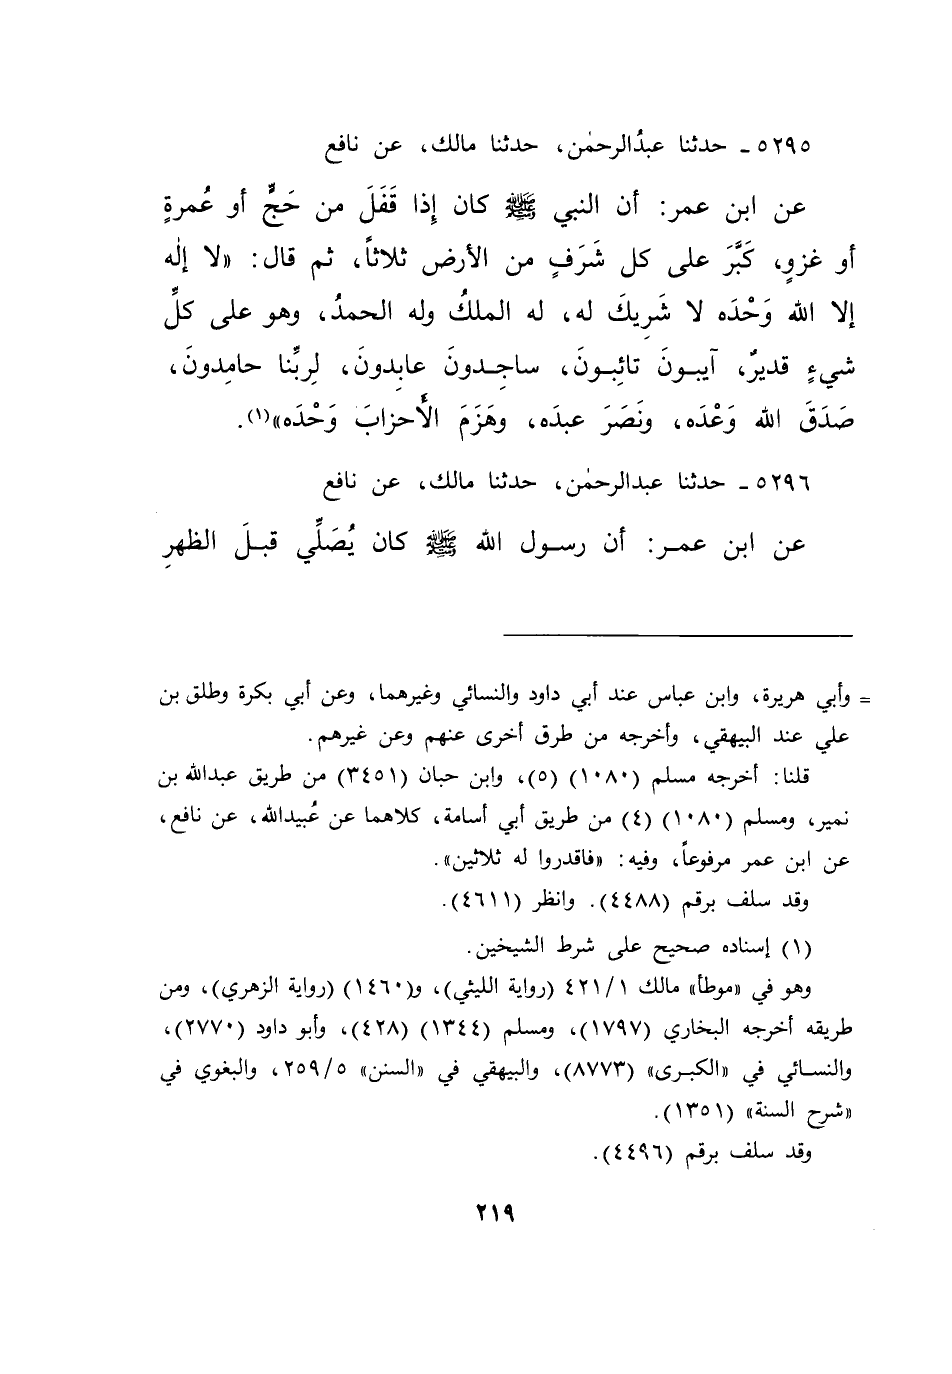 ٥٢٩٥ ـ حدثنا عبدُالرحمٰن، حدثنا مالك، عن نافع
عن ابن عمر: أن النبي ﷺ كان إِذا قَفَلَ من حَجٍّ أو عُمرةٍ
أو غزوٍ، كَبَّرَ على كل شَرَفٍ من الأرض ثلاثاً، ثم قال: «لا إلٰه
إلا الله وَحْدَه لا شَرِيكَ له، له الملكُ وله الحمدُ، وهو على كلِّ
شيءٍ قديرٌ، آيبونَ تائِبونَ، ساجِدونَ عابِدونَ، لِربِّنا حامِدونَ،
صَدَقَ الله وَعْدَه، ونَصَرَ عبدَه، وهَزَمَ الأَحزابَ وَحْدَه»(١).
٥٢٩٦ ـ حدثنا عبدالرحمٰن، حدثنا مالك، عن نافع
عن ابن عمر: أن رسول الله ﷺ كان يُصَلِّي قبلَ الظهرِ
= وأبي هريرة، وابن عباس عند أبي داود والنسائي وغيرهما، وعن أبي بكرة وطلق بن
علي عند البيهقي، وأخرجه من طرق أخرى عنهم وعن غيرهم.
قلنا: أخرجه مسلم (١٠٨٠) (٥)، وابن حبان (٣٤٥١) من طريق عبدالله بن
نمير، ومسلم (١٠٨٠) (٤) من طريق أبي أسامة، كلاهما عن عُبيدالله، عن نافع،
عن ابن عمر مرفوعاً، وفيه: «فاقدروا له ثلاثين».
وقد سلف برقم (٤٤٨٨). وانظر (٤٦١١).
(١) إسناده صحيح على شرط الشيخين.
وهو في «موطأ» مالك ٤٢١/١ (رواية الليثي)، و(١٤٦٠) (رواية الزهري)، ومن
طريقه أخرجه البخاري (١٧٩٧)، ومسلم (١٣٤٤) (٤٢٨)، وأبو داود (٢٧٧٠)،
والنسائي في «الكبرى» (٨٧٧٣)، والبيهقي في «السنن» ٢٥٩/٥، والبغوي في
«شرح السنة» (١٣٥١).
وقد سلف برقم (٤٤٩٦).
٢١٩